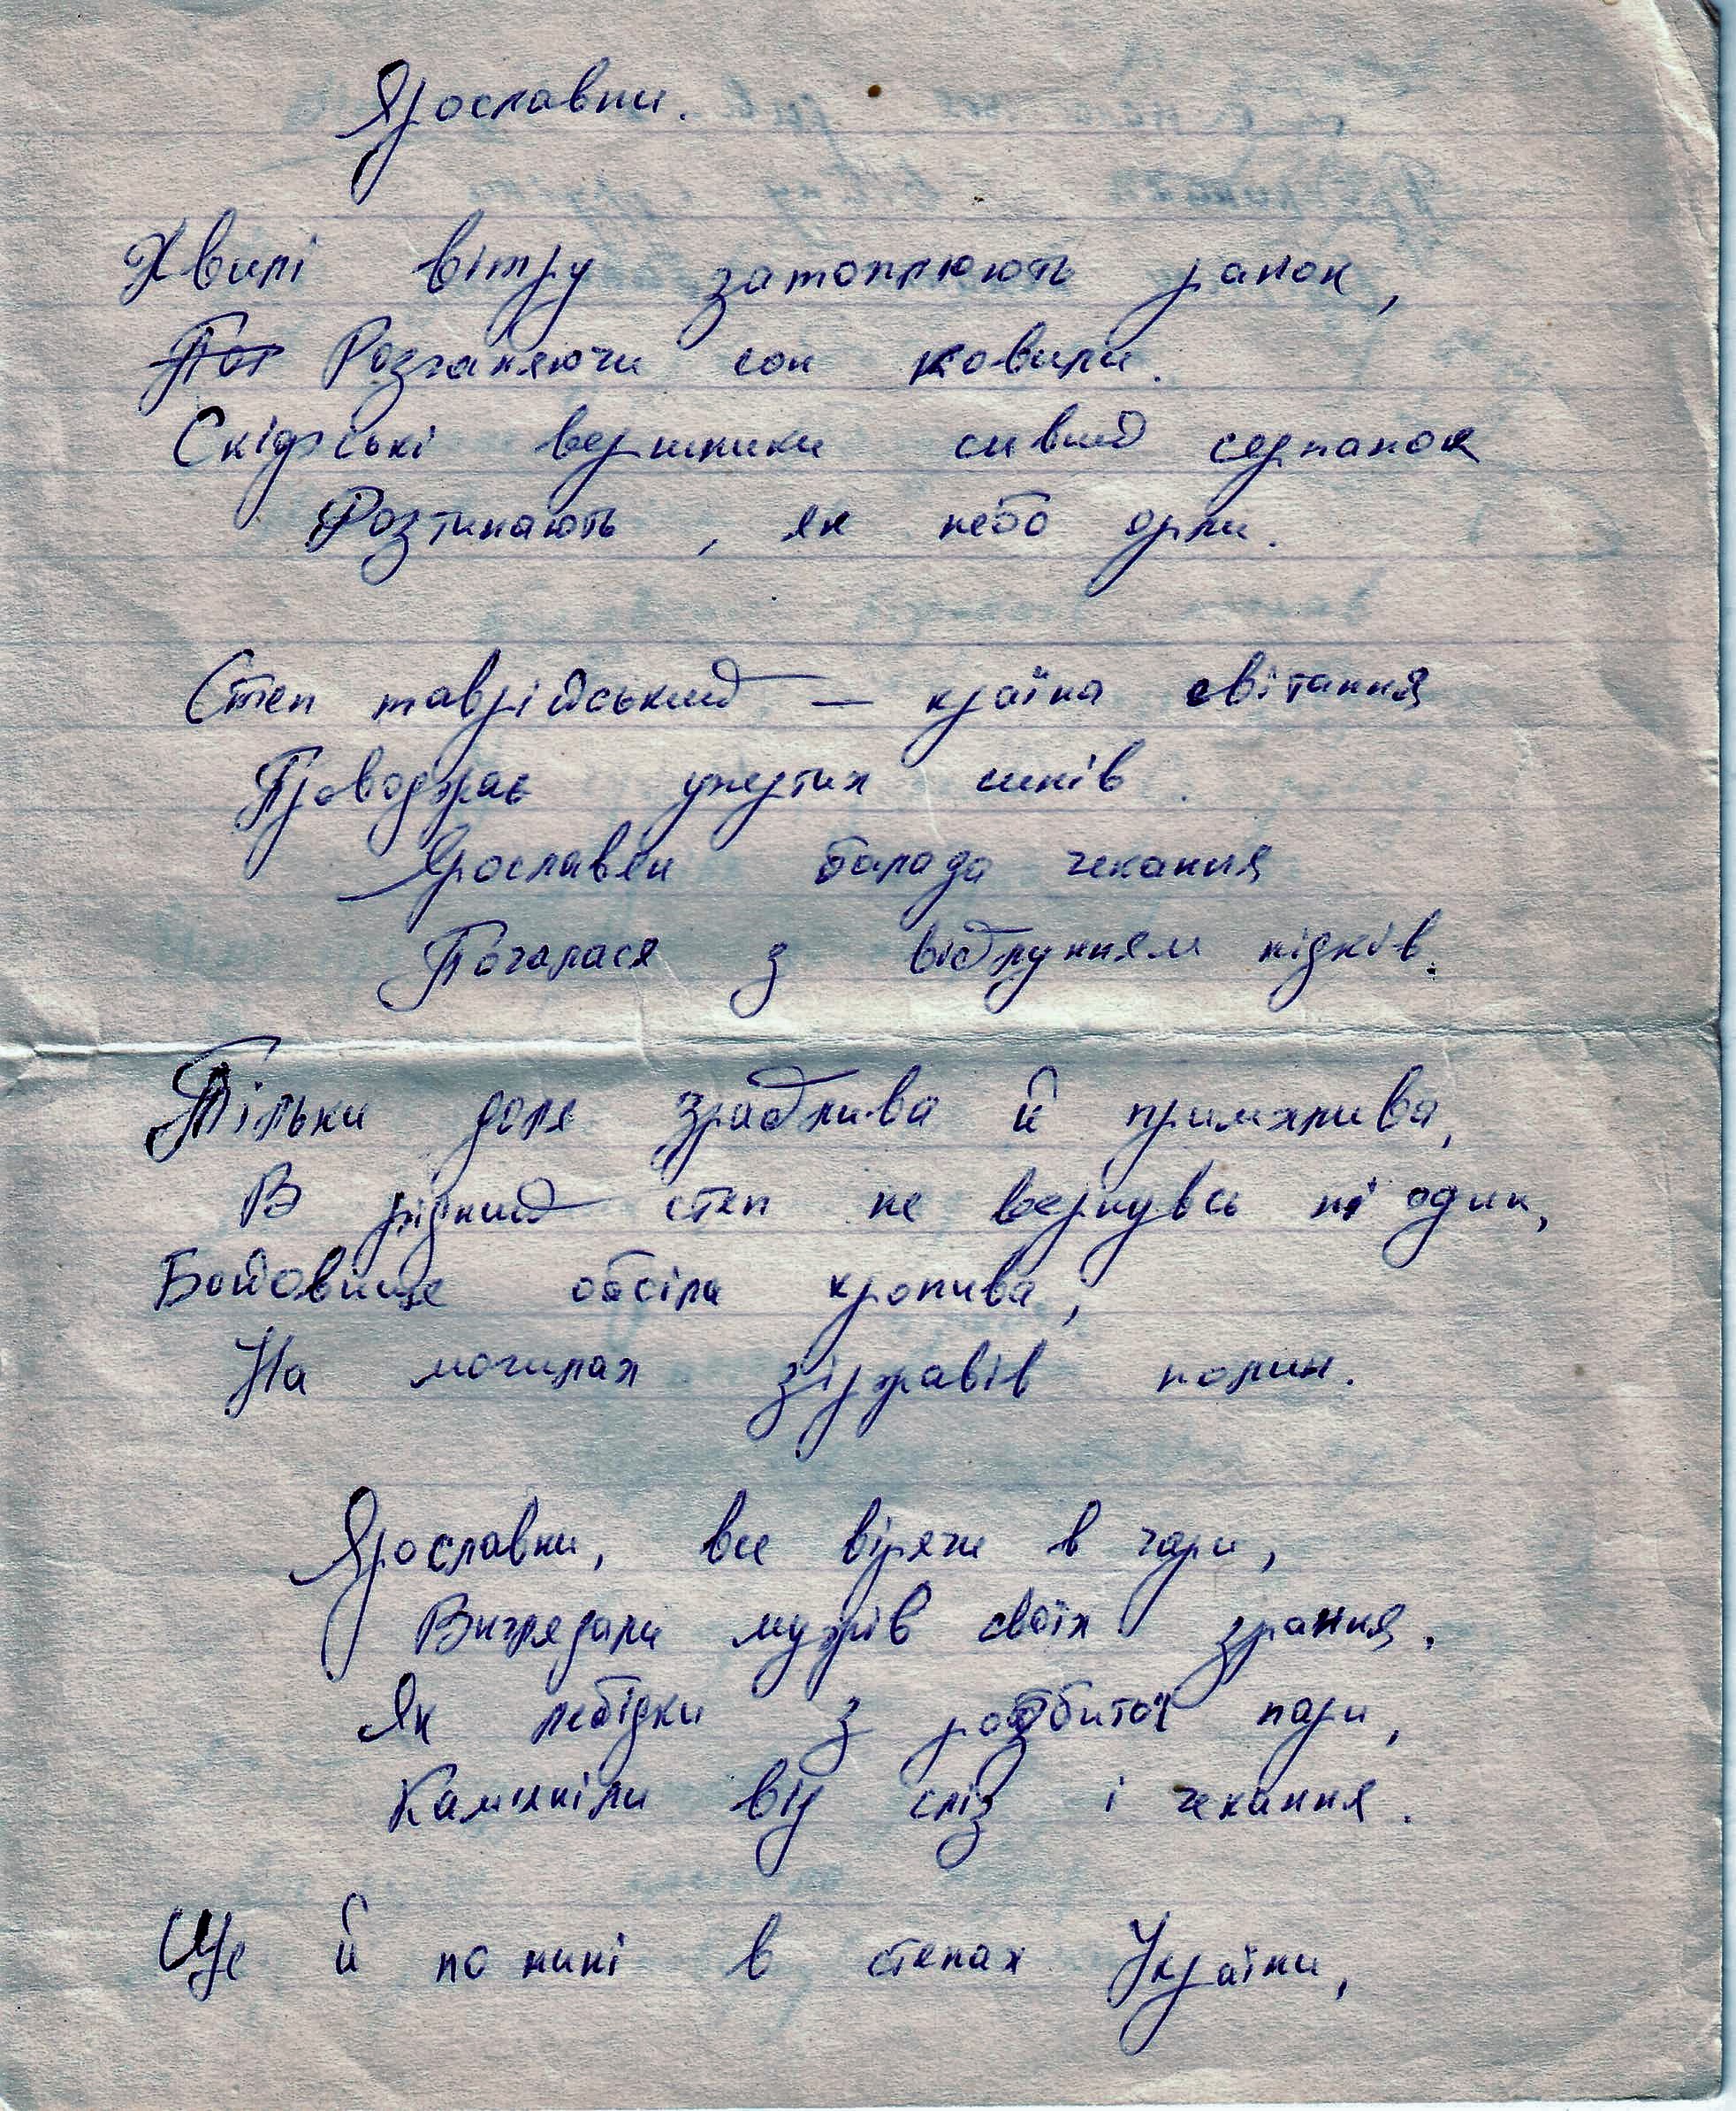 Ярославни.
Хвилі вітру затоплюють ранок,
Розганяючи сон ковили.
Скіфські вершники сивий серпанок
Розтинають, як небо орли.
Степ таврійський — країна світання
Проводжає упертих синів.
Ярославен балада чекання
Почалася з відлунням підків.
Тільки доля зрадлива й примхлива,
В рідний степ не вернувсь ні один,
Бойовище обсіла кропива,
На могилах зіржавів полин.
Ярославни, все вірячи в чари,
Виглядали мужів своїх зрання.
Як лебідки з розбитої пари,
Кам'яніли від сліз і чекання.
Ще й по нині в степах України,